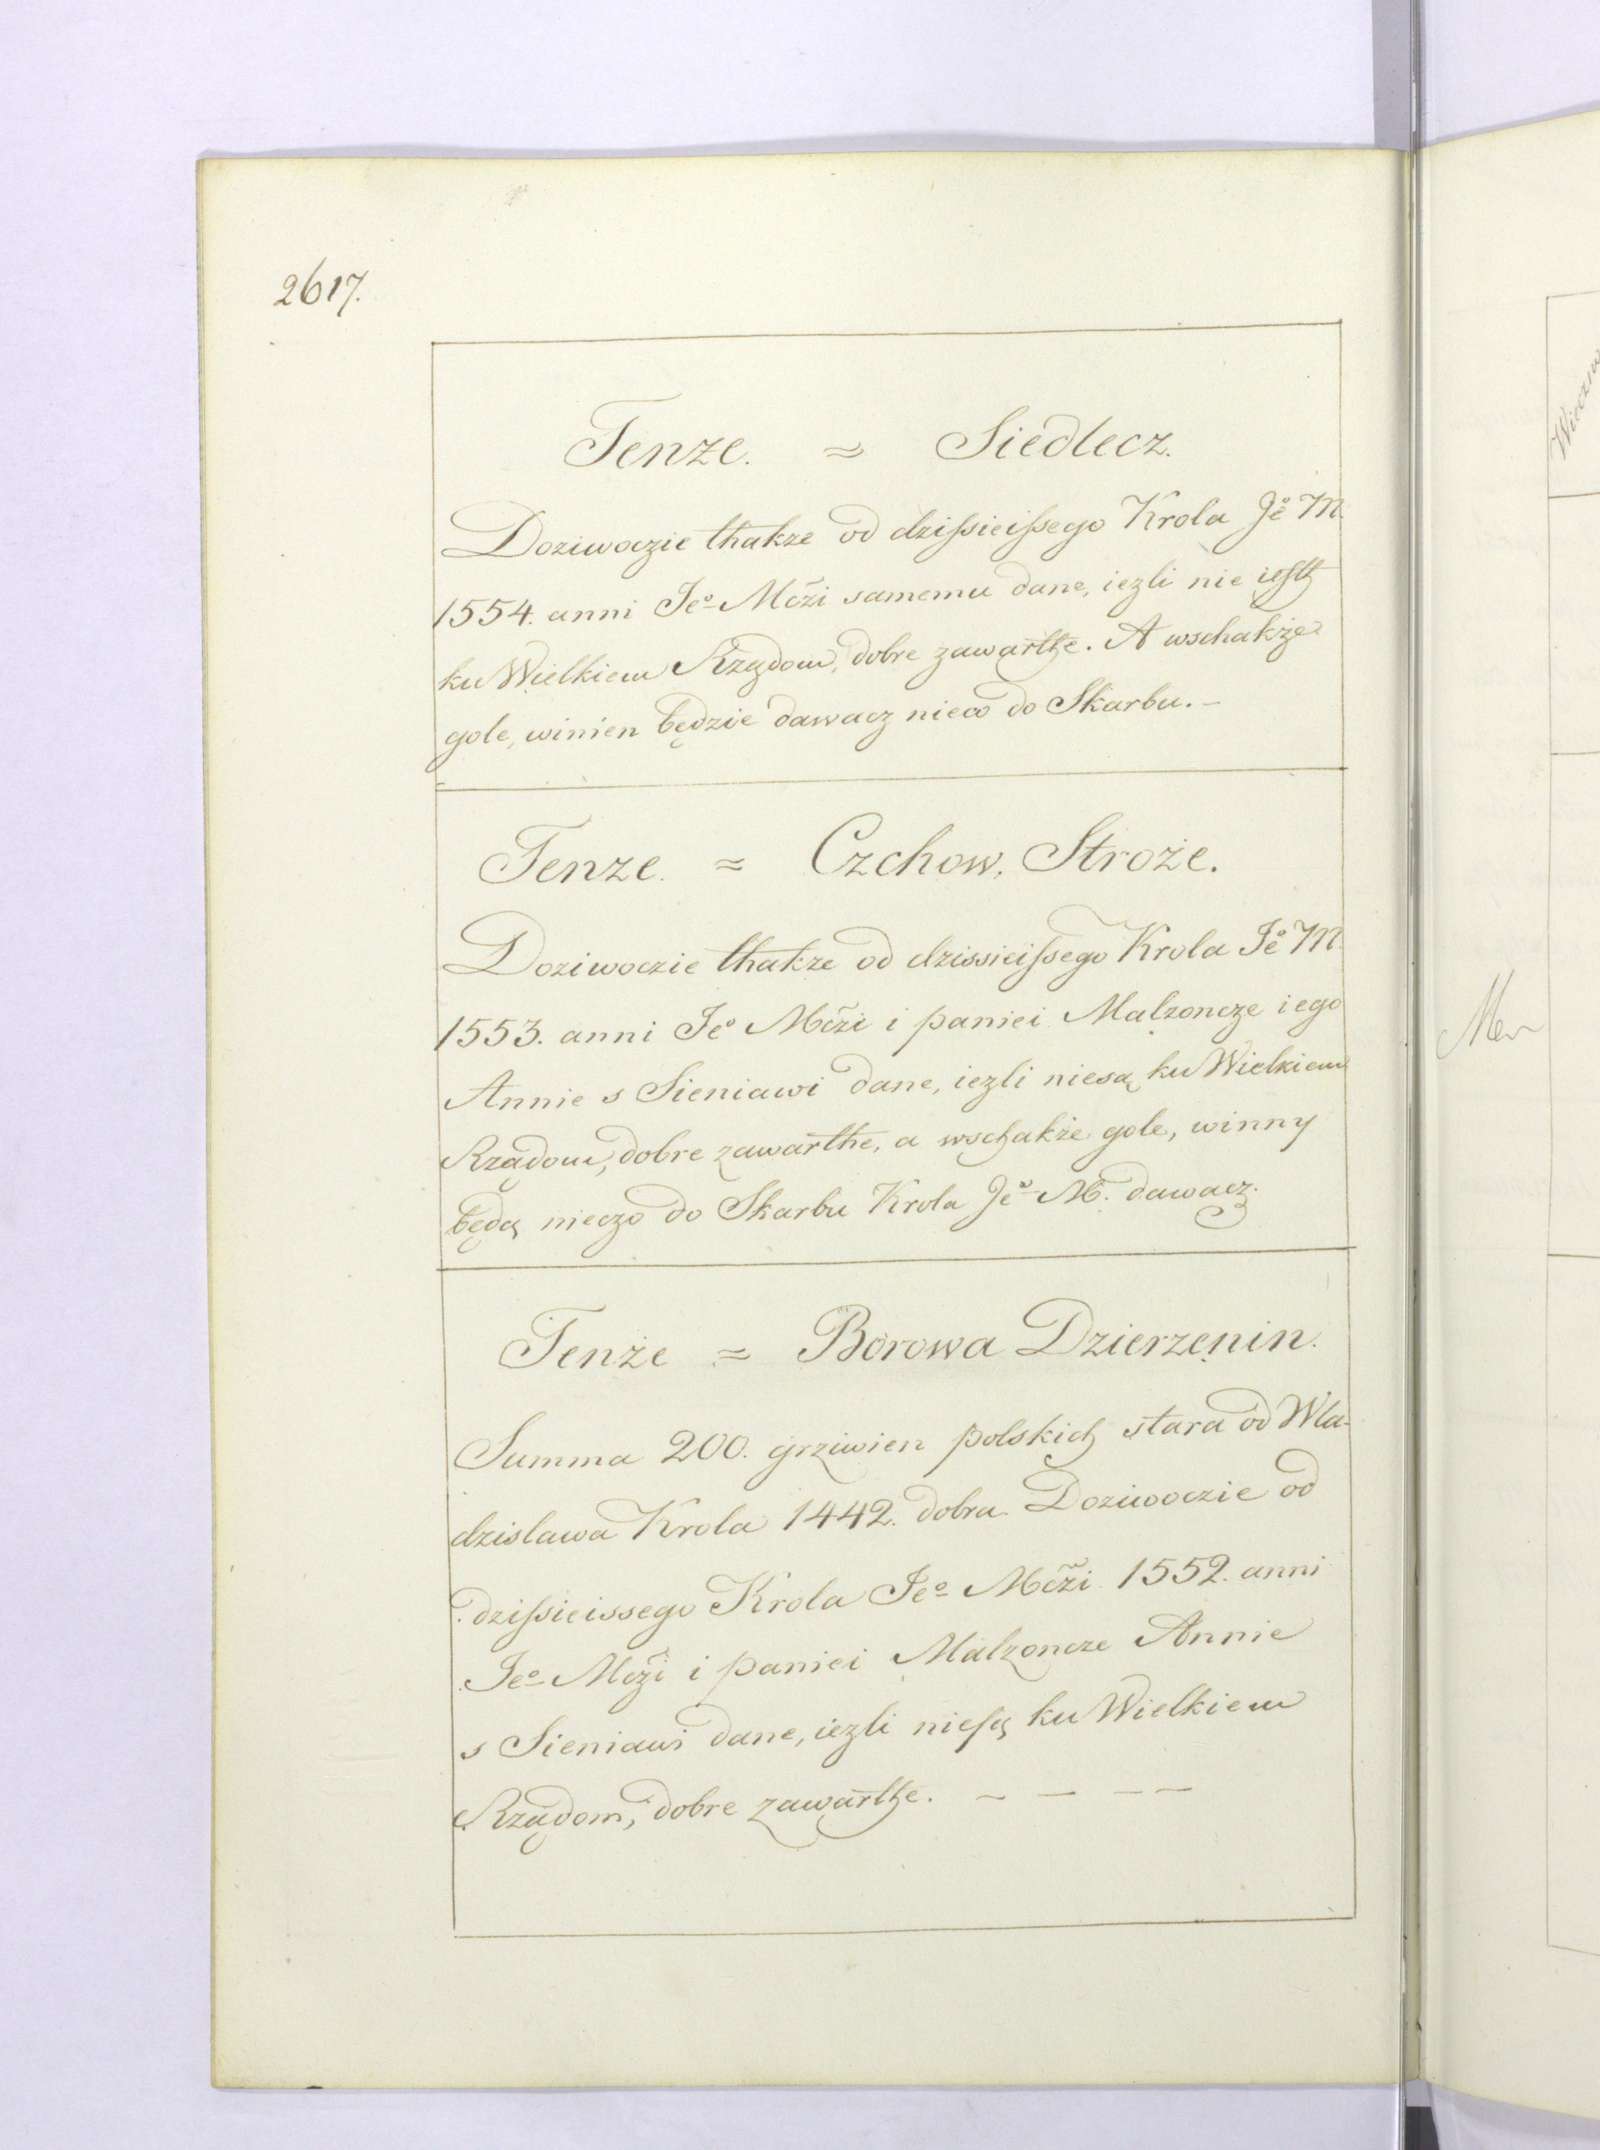 2617.
Tenze. = Siedlecz.
Doziwoczie thakze od dzissieissego Krola Jeo M.
1554. anni Jeo Mczi samemu dane, iezli nie iesth
ku Wielkiem Rządom, dobre zawarthe. A wschakże
gole, winien będzie dawacz nieco do Skarbu. –
Tenze. = Czchow, Stroże.
Doziwoczie thakze od dzissieissego Krola Jeo M.
1553. anni Jeo Mczi i paniei Malzoncze iego
Annie s Sieniawi dane, iezli niesą ku Wielkiem
Rządom, dobre zawarthe, a wschakże gole, winny
będą nieczo do Skarbu Krola Jeo M. dawacz.
Tenże = Borowa Dzierzenin.
Summa 200. grziwien polskich stara od Wla-
dzislawa Krola 1442. dobra Doziwoczie od
dzissieissego Krola Jeo Mczi 1552. anni
Jeo Mczi i paniei Malzoncze Annie
s Sieniawi dane, iezli niesą ku Wielkiem
Rządom, dobre zawarthe. – – – –